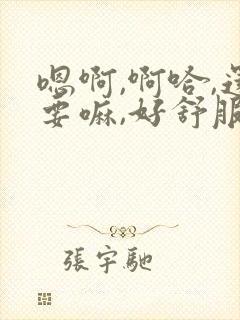 嗯啊,啊哈,还
要嘛,好舒服
張宇馳